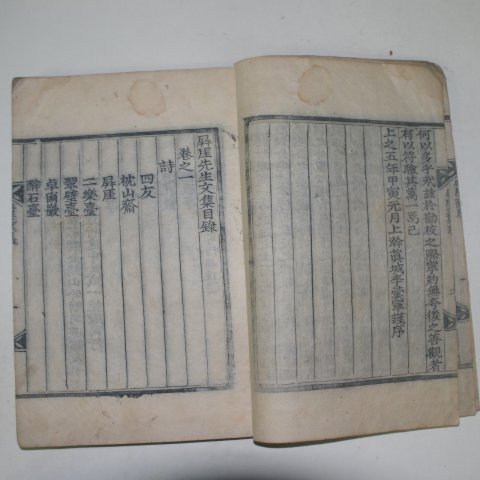 何以多乎哉玆於勘校之際寧約無夸後之善觀者
有以符驗其萬一焉已
上之五年甲寅元月上澣眞城李臺寧謹序
屛厓先生文集目錄
卷之一
詩
四友
枕山齋
屛厓
二樂臺
翠壁臺
卓爾巖
醉石臺